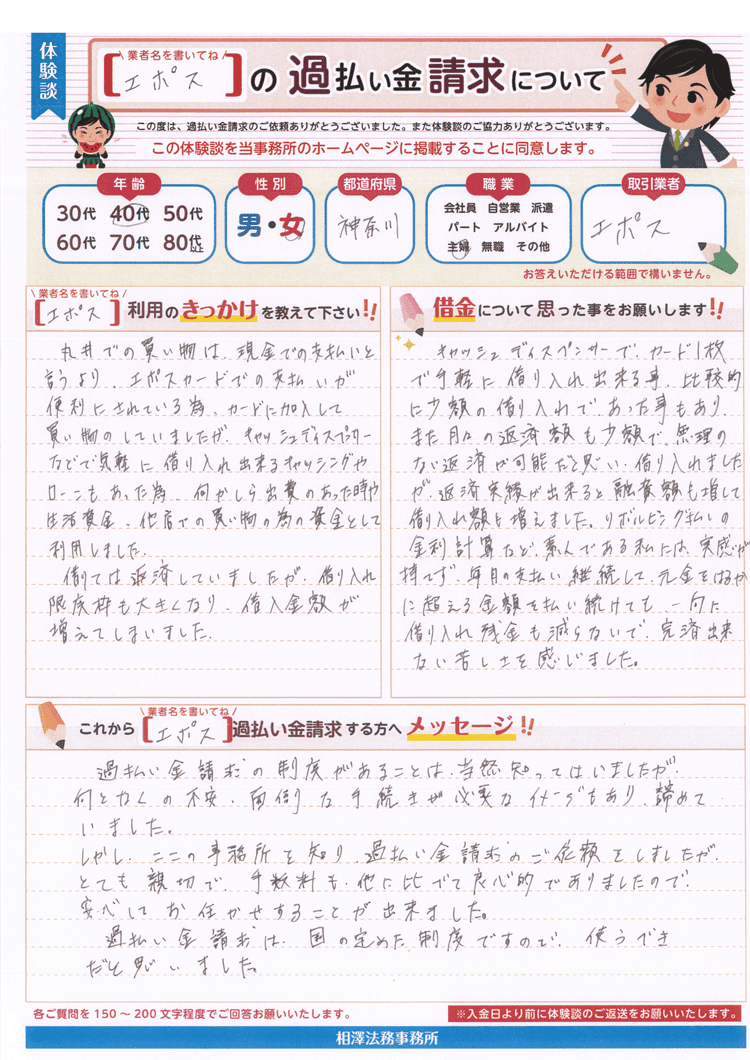 体験談
\ 業者名を書いてね /
[エポス]の 過払い金 請求について
この度は、過払い金請求のご依頼ありがとうございました。また体験談のご協力ありがとうございます。
この体験談を当事務所のホームページに掲載することに同意します。
年齢
30代 40代 50代
60代 70代 80代以上
性別
男・女
都道府県
神奈川
職業
会社員 自営業 派遣
パート アルバイト
主婦 無職 その他
取引業者
エポス
お答えいただける範囲で構いません。
\ 業者名を書いてね /
[エポス] 利用のきっかけを教えて下さい!!
丸井での買い物は、現金での支払いと
言うより、エポスカードでの支払いが
便利にされている為、カードに加入して
買い物のしていましたが、キャッシュディスペンサー
などで気軽に借り入れ出来るキャッシングや
ローンもあった為、何かしら出費のあった時や
生活資金、他店での買い物の為の資金として
利用しました。
借りては返済していましたが、借り入れ
限度枠も大きくなり、借入金額が
増えてしまいました。
借金について思った事をお願いします!!
キャッシュディスペンサーで、カード1枚
で手軽に借り入れ出来る事、比較的
に少額の借り入れで、あった事もあり、
また月々の返済額も少額で、無理の
ない返済が可能だと思い、借り入れました
が、返済実績が出来ると融資額も増して
借り入れ額も増えました。リボルビング払いの
金利計算など、素人である私には、実感が
持てず、毎月の支払い継続して、元金をはるか
に超える金額を払い続けても、一向に
借り入れ残金も減らないで、完済出来
ない苦しさを感じました。
\ 業者名を書いてね /
これから[エポス]過払い金請求する方へメッセージ!!
過払い金請求の制度があることは、当然知ってはいましたが、
何となくの不安、面倒な手続きが必要なイメージもあり、諦めて
いました。
しかし、ここの事務所を知り、過払い金請求のご依頼をしましたが、
とても親切で、手数料も、他に比べて良心的でありましたので、
安心してお任かせすることが出来ました。
過払い金請求は、国の定めた制度ですので、使うべき
だと思いました。
各ご質問を150〜200文字程度でご回答お願いいたします。
※入金日より前に体験談のご返送をお願いいたします。
相澤法務事務所